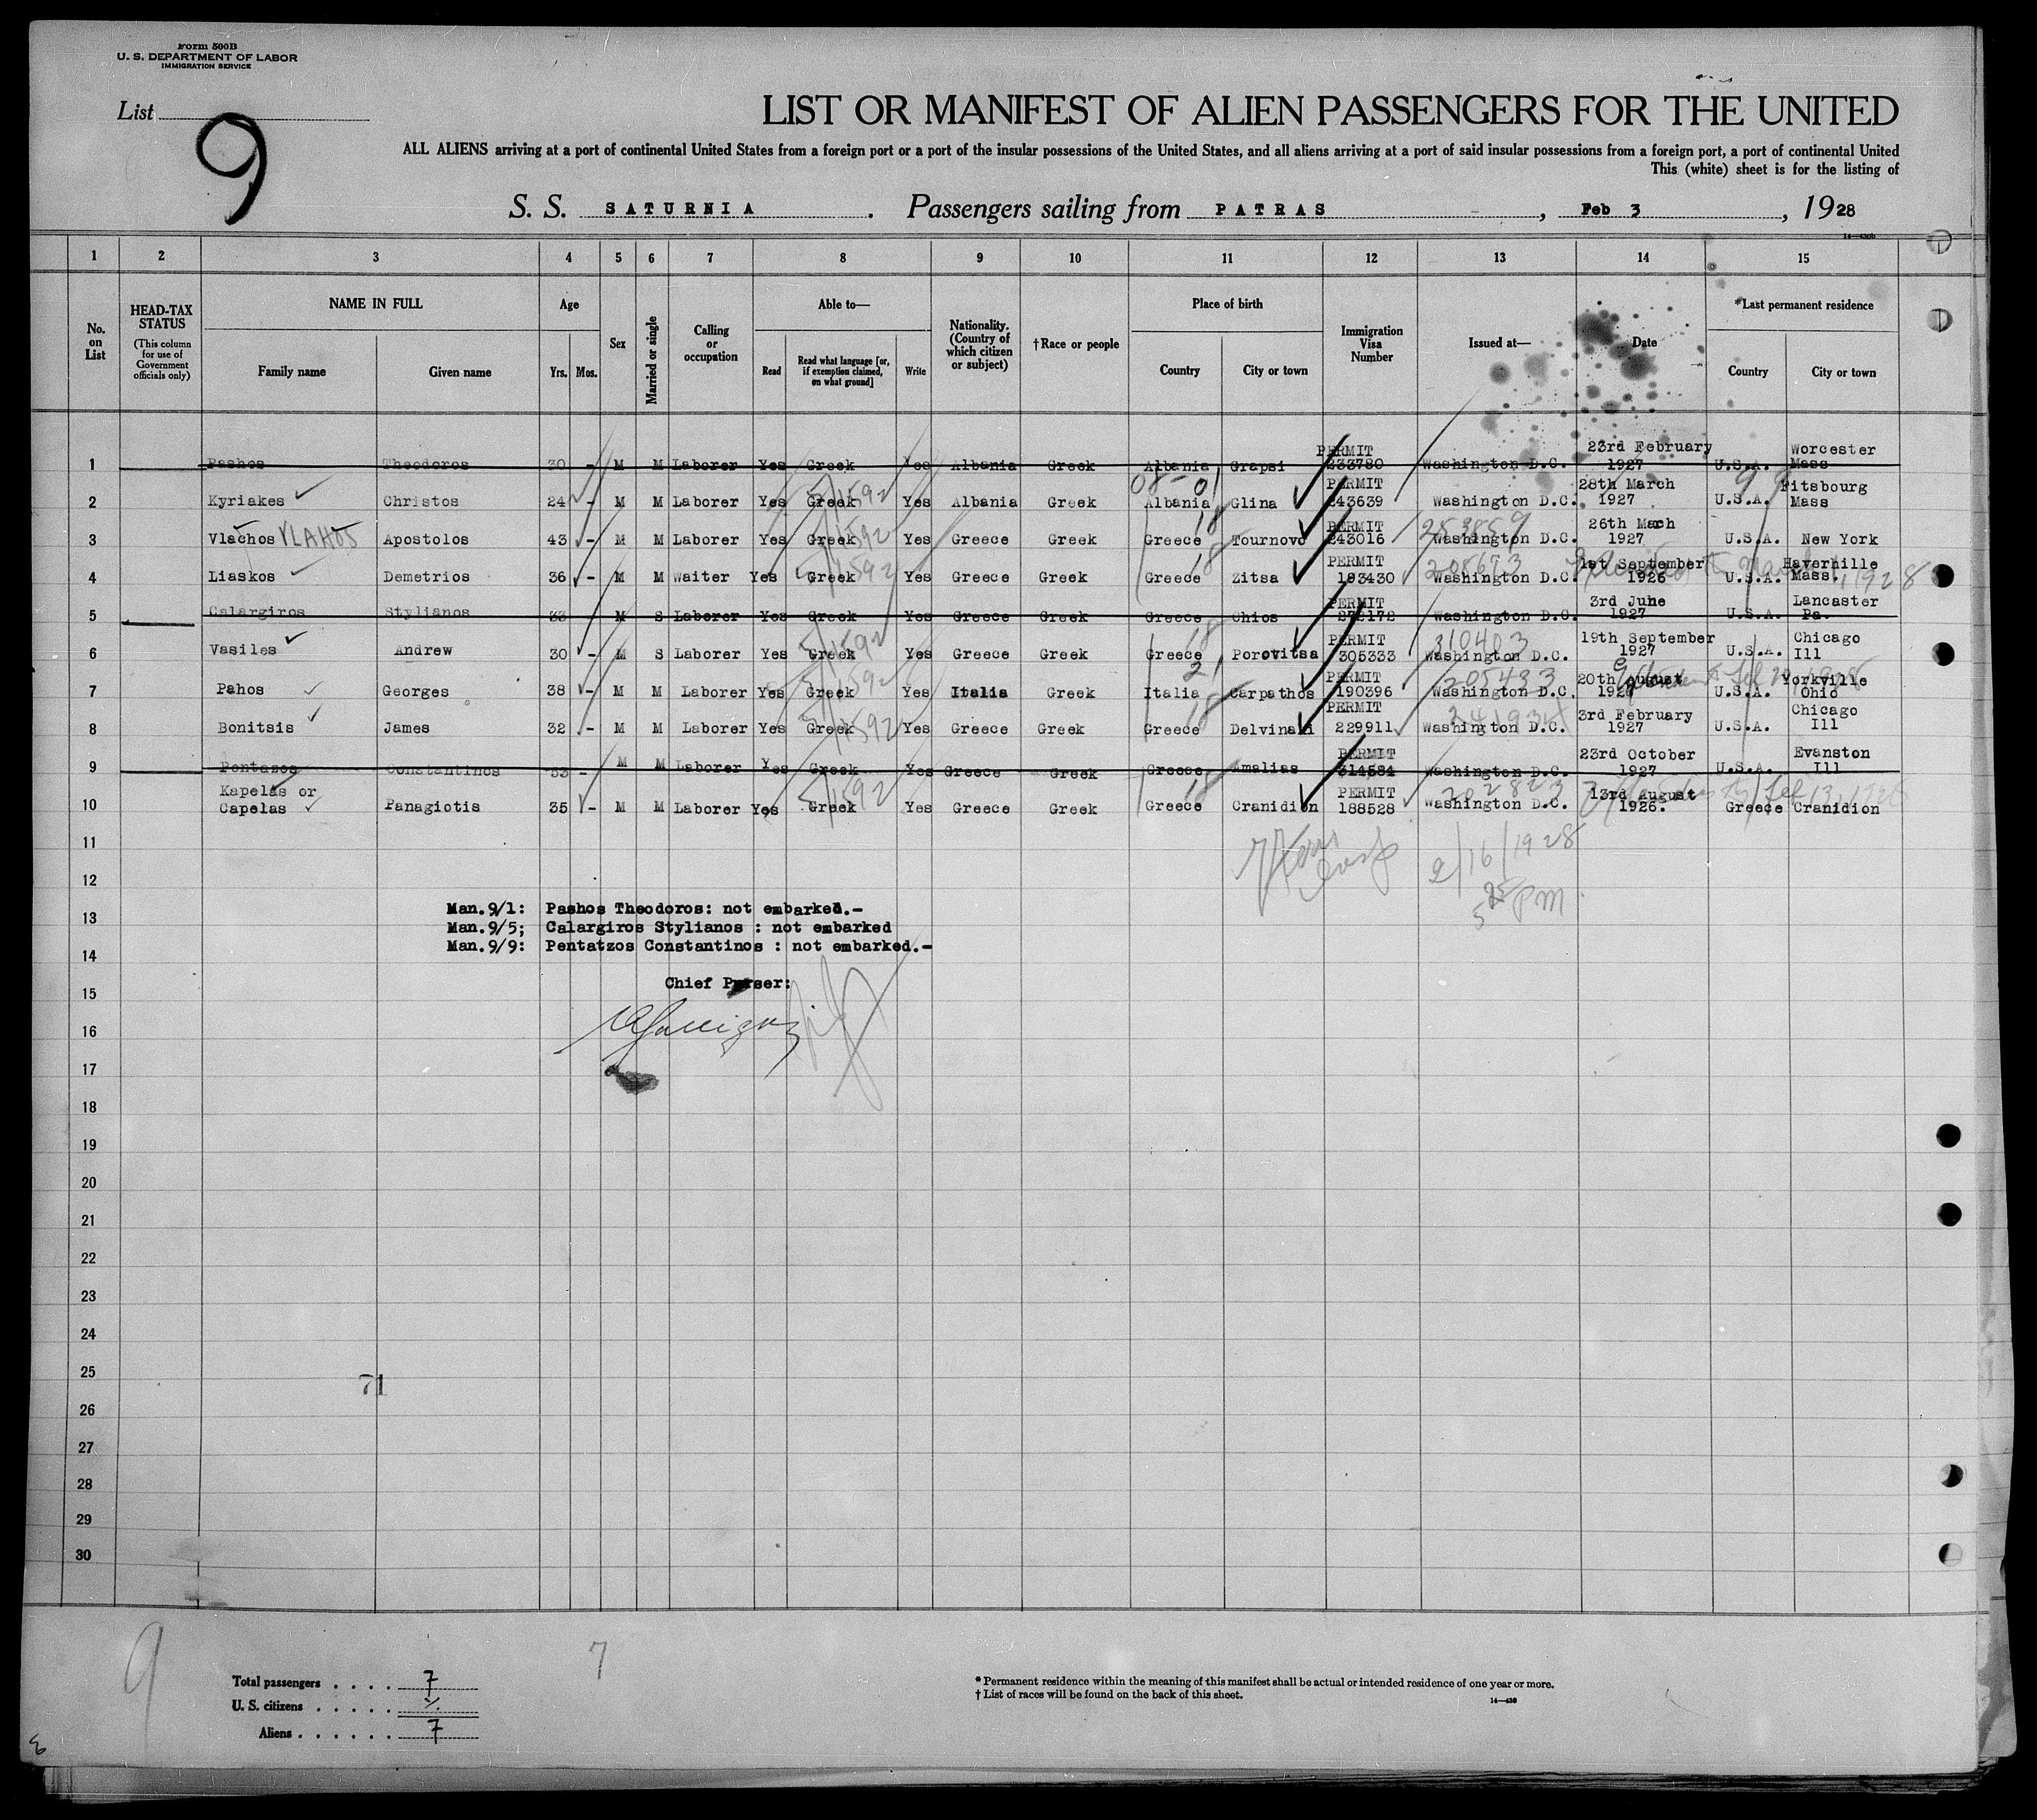 Form 500B
U. S. DEPARTMENT OF LABOR
IMMIGRATION SERVICE
List
9
LIST OR MANIFEST OF ALIEN PASSENGERS FOR THE UNITED
ALL ALIENS arriving at a port of continental United States from a foreign port or a port of the insular possessions of the United States, and all aliens arriving at a port of said insular possessions from a foreign port, a port of continental United
This (white) sheet is for the listing of
S. S. SATURNIA. Passengers sailing from PATRAS, Feb 3, 1928
14—430b
1 2 3 4 5 6 7 8 9 10 11 12 13 14 15
No. on List
HEAD-TAX STATUS (This column for use of Government officials only)
NAME IN FULL Family name Given name
Age Yrs. Mos.
Sex
Married or single
Calling or occupation
Able to— Read Read what language [or, if exemption claimed, on what ground] Write
Nationality. (Country of which citizen or subject)
†Race or people
Place of birth Country City or town
Immigration Visa Number
Issued at—
Date
*Last permanent residence Country City or town
1 Pashos Theodoros 30 - M M Laborer Yes Greek Yes Albania Greek Albania Grapsi PERMIT 233780 Washington D.C. 23rd February 1927 U.S.A. Worcester Mass
2 Kyriakes Christos 24 - M M Laborer Yes Greek Yes Albania Greek Albania Glina PERMIT 243639 Washington D.C. 28th March 1927 U.S.A. Fitsbourg Mass
3 Vlachos VLAHOS Apostolos 43 - M M Laborer Yes Greek Yes Greece Greek Greece Tournovo PERMIT 243016 253859 Washington D.C. 26th Mach 1927 U.S.A. New York
4 Liaskos Demetrios 36 - M M Waiter Yes Greek Yes Greece Greek Greece Zitsa PERMIT 193430 208653 Washington D.C. 1st September 1926 U.S.A. Haverhille Mass. 1928
5 Calargiros Stylianos 33 - M S Laborer Yes Greek Yes Greece Greek Greece Chios PERMIT 272172 Washington D.C. 3rd June 1927 U.S.A. Lancaster Pa.
6 Vasiles Andrew 30 - M S Laborer Yes Greek Yes Greece Greek Greece Porovitsa PERMIT 305333 310403 Washington D.C. 19th September 1927 U.S.A. Chicago Ill
7 Pahos Georges 38 - M M Laborer Yes Greek Yes Italia Greek Italia Carpathos PERMIT 190396 205433 Washington D.C. 20th August 1926 U.S.A. Yorkville Ohio
8 Bonitsis James 32 - M M Laborer Yes Greek Yes Greece Greek Greece Delvinaki PERMIT 229911 Washington D.C. 3rd February 1927 U.S.A. Chicago Ill
9 Pentazos Constantinos 33 - M M Laborer Yes Greek Yes Greece Greek Greece Amalias PERMIT 314584 Washington D.C. 23rd October 1927 U.S.A. Evanston Ill
10 Kapelas or Capelas Panagiotis 35 - M M Laborer Yes Greek Yes Greece Greek Greece Cranidion PERMIT 188528 202823 Washington D.C. 13rd August 1926. Greece Cranidion
11
2/16/1928
12
5 25 PM.
Man.9/1: Pashos Theodoros: not embarked.-
13
Man.9/5; Calargiros Stylianos : not embarked
Man.9/9: Pentatzos Constantinos : not embarked.-
14
Chief Purser:
15
16
17
18
19
20
21
22
23
24
25
71
26
27
28
29
30
9
7
Total passengers . . . . 7
U. S. citizens . . . . .
Aliens . . . . . . 7
* Permanent residence within the meaning of this manifest shall be actual or intended residence of one year or more.
† List of races will be found on the back of this sheet.
14—430